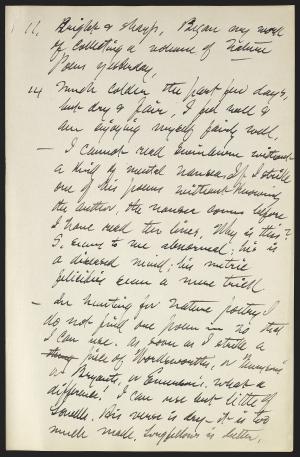 11, Bright & sharp, Began my work
of collecting a volume of Nature
Poems yesterday,
14 Much colder the past few days,
but dry & fair, I feel well &
am enjoying myself fairly well,
— I cannot read Swinburne without
a kind of mental nausea. If I strike
one of his poems without knowing
the author, the nausea comes before
I have read ten lines. Why is this?
S. seems to me abnormal; his is
a diseased mind; his metric
felicities seem a mere trick
— In hunting for Nature poetry I
do not find one poem in his that
I can use. As soon as I strike a
thing piece of Wordsworths, or Tennysons
or Bryants, or Emersons. What a
difference! I can use but little of
Lowells. His verse is dry — it is too
much made. Longfellows is better,